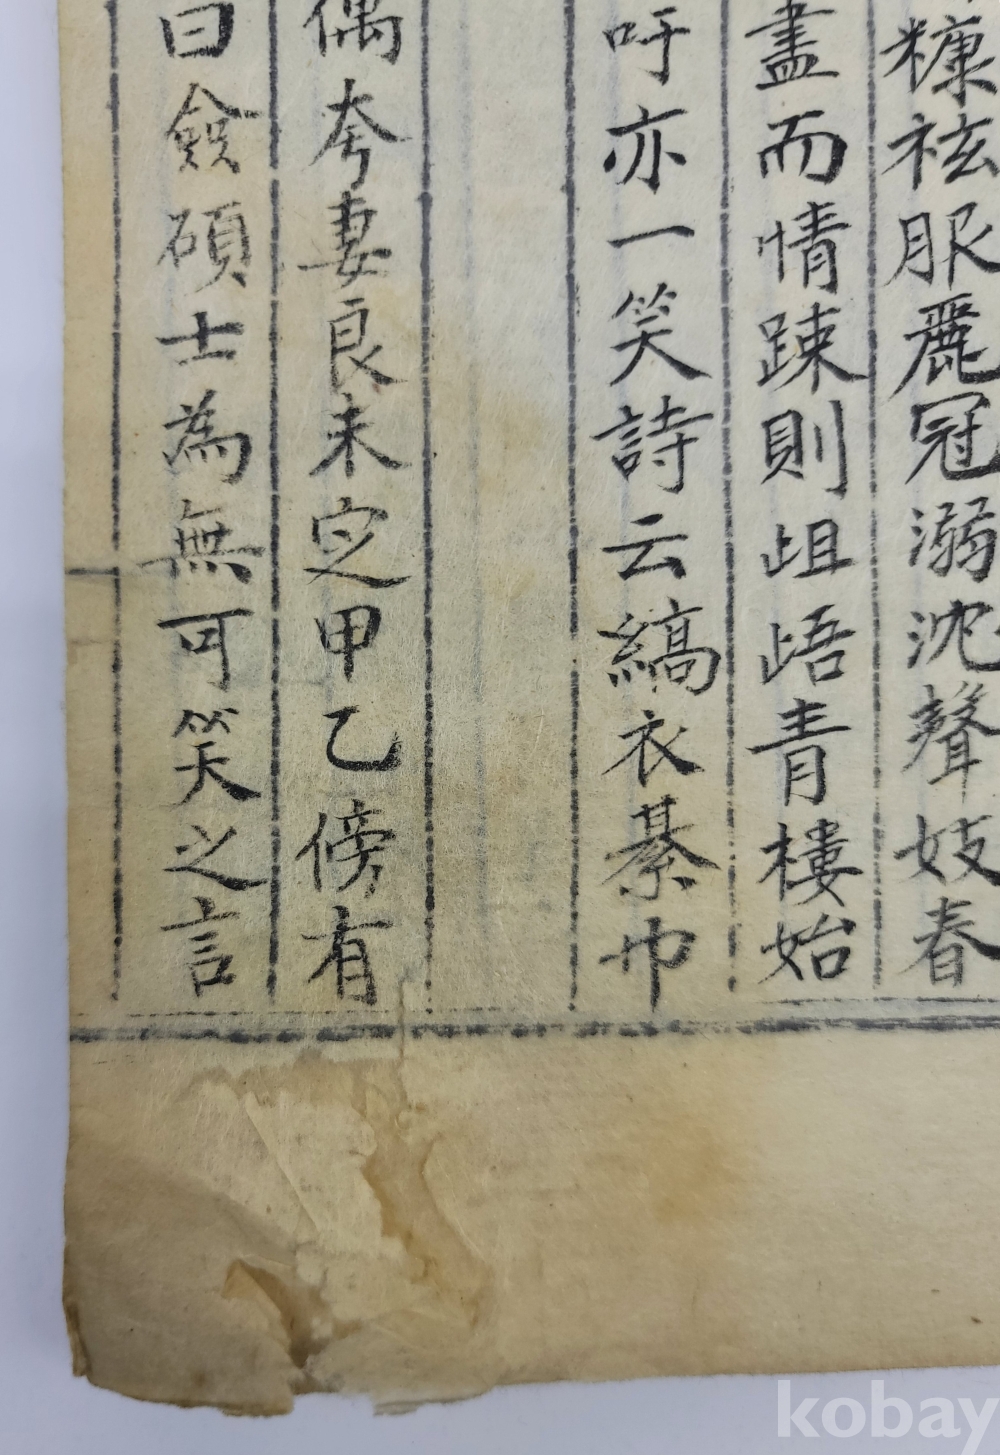 糠袨服麗冠溺沈聲妓春
盡而情踈則岨峿青樓始
吁亦一笑詩云縞衣綦巾
偶夸妻良未定甲乙傍有
曰僉碩士為無可笑之言
kobay